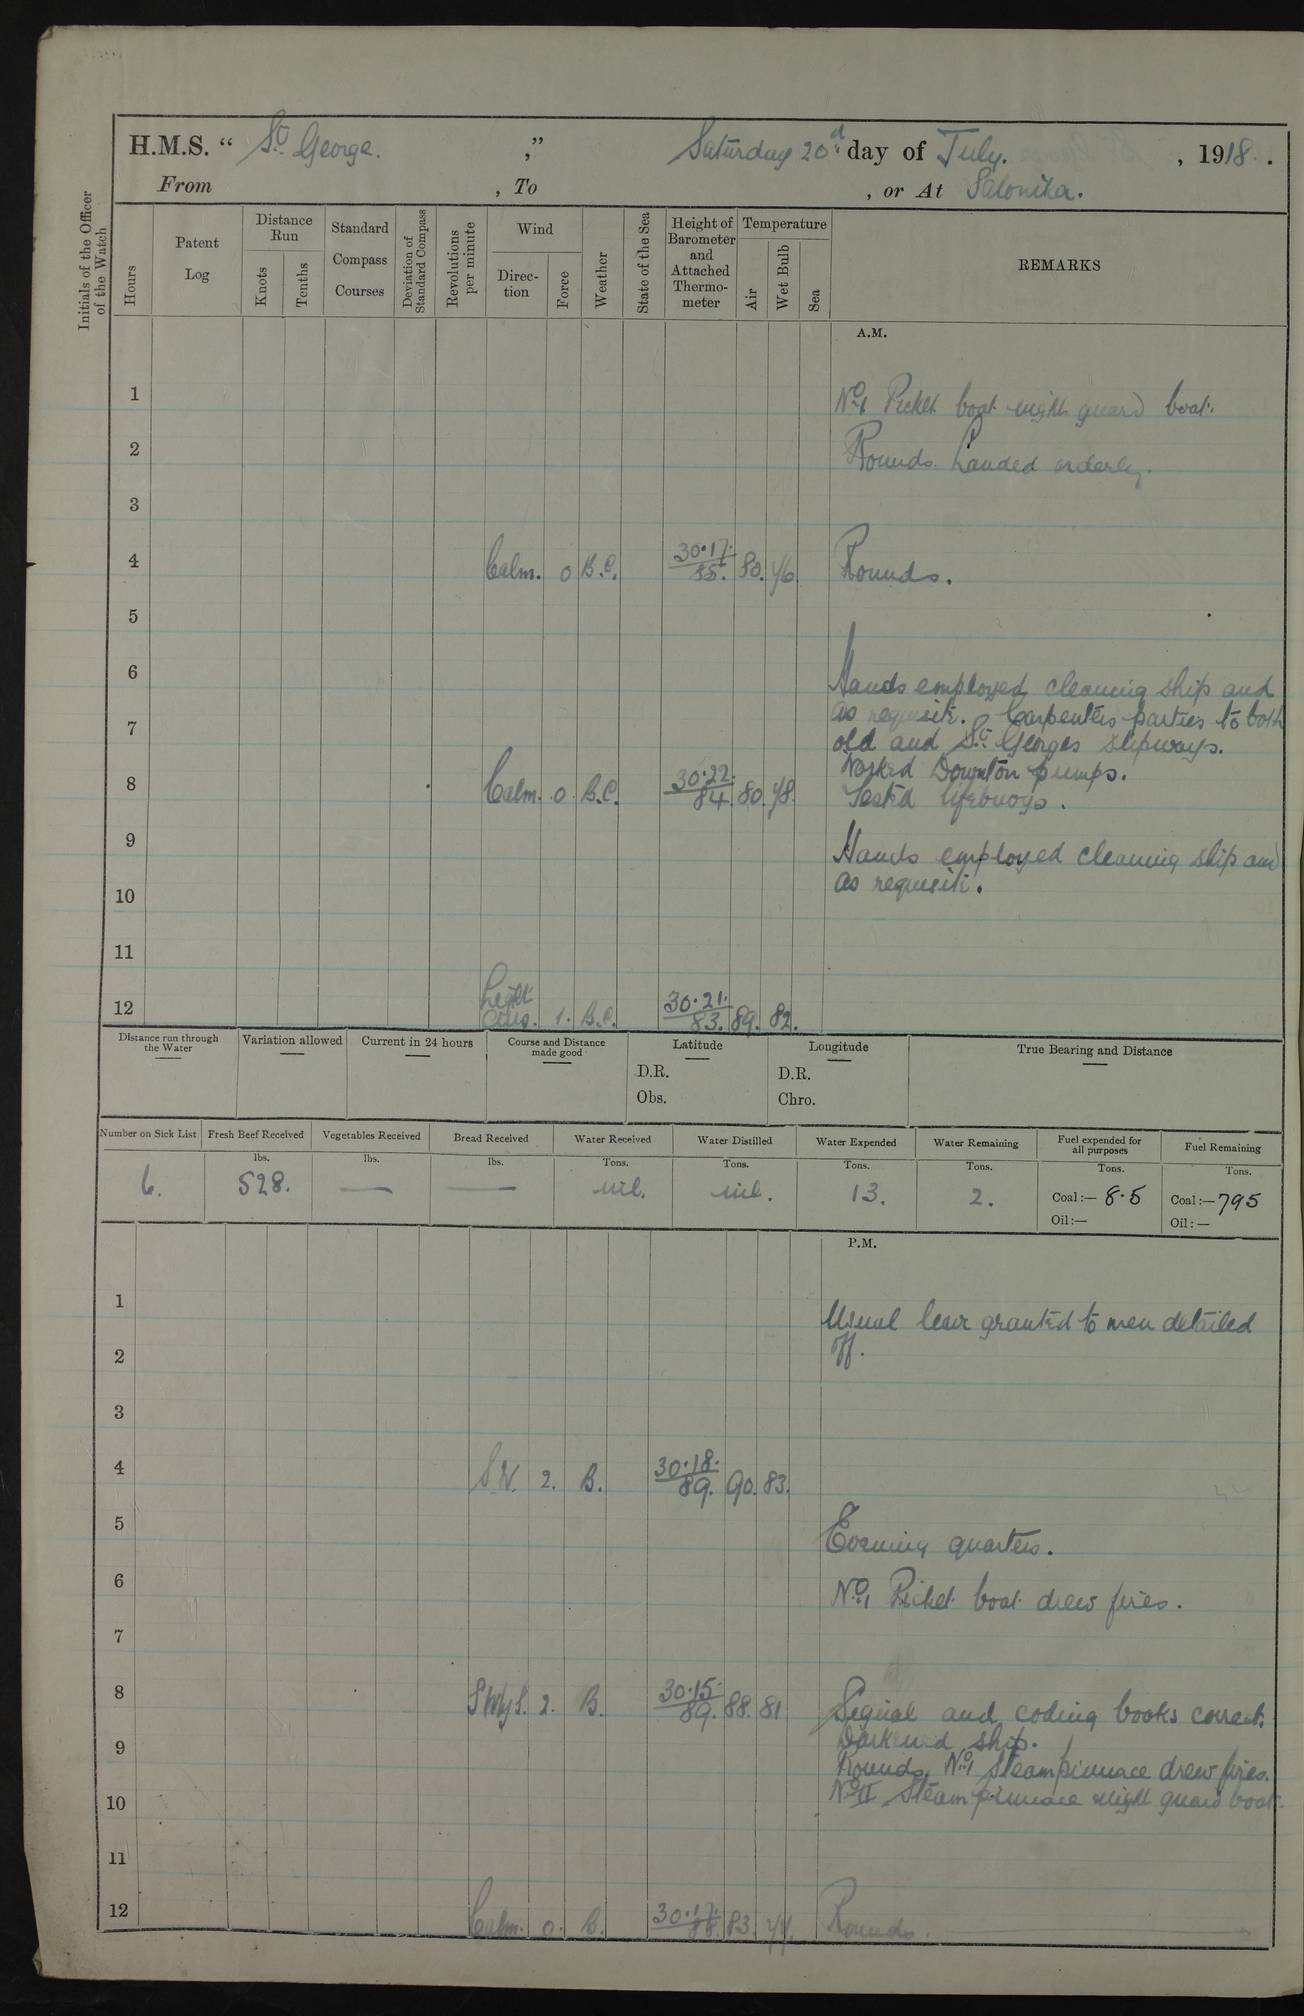 H.M.S. “ St. George. ,” Saturday 20th day of July. , 1918 .
From , To , or At Salonika.
Initials of the Officer of the Watch
Hours
Patent Log
Distance Run
Knots
Tenths
Standard Compass Courses
Deviation of Standard Compass
Revolutions per minute
Wind
Direc-tion
Force
Weather
State of the Sea
Height of Barometer and Attached Thermo-meter
Temperature
Air
Wet Bulb
Sea
REMARKS
A.M.
1 No. 1 Picket boat night guard boat.
2 Rounds. Landed orderly.
3
4 Calm. 0 B.C. 30.17. 85. 80. 76 Rounds.
5
6 Hands employed cleaning ship and
as requisite. Carpenters parties to both
7 old and St. Georges slipways.
Worked Downton pumps.
8 Calm. 0. B.C. 30.22. 84. 80. 78. Tested lifebuoys.
9 Hands employed cleaning ship and
10 as requisite.
11
12 Light airs. 1. B.C. 30.21. 83. 89. 82.
Distance run through the Water
Variation allowed
Current in 24 hours
Course and Distance made good
Latitude
D.R.
Obs.
Longitude
D.R.
Chro.
True Bearing and Distance
Number on Sick List Fresh Beef Received Vegetables Received Bread Received Water Received Water Distilled Water Expended Water Remaining Fuel expended for all purposes Fuel Remaining
lbs. lbs. lbs. Tons. Tons. Tons. Tons. Tons. Tons.
6. 528. — — nil. nil. 13. 2. Coal :— 8.5 Coal :— 795
Oil :— Oil :—
P.M.
1 Usual leave granted to men detailed
2 off.
3
4 S.W. 2. B. 30.18. 89. 90. 83.
5 Evening quarters.
6 No. 1 Picket boat drew fires.
7
8 SWyS. 2. B. 30.15. 89. 88. 81 Signal and coding books correct.
9 Darkened ship.
Rounds, No. 1 Steampinnace drew fires.
10 No. II Steam pinnace night guard boat.
11
12 Calm. 0. B. 30.17. 88. 83. 77. Rounds.